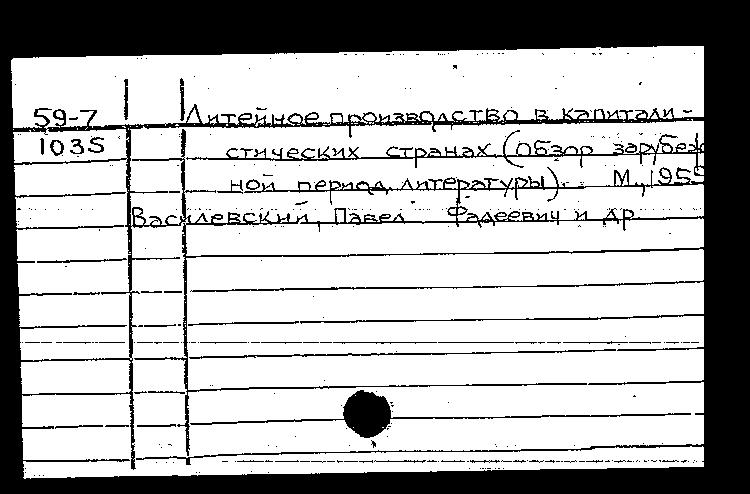 59-7 Литейное производство в капитали-
1035 стических странах. (Обзор зарубеж
ной период. литературы). М., 1959
Василевский, Павел Фадеевич и др